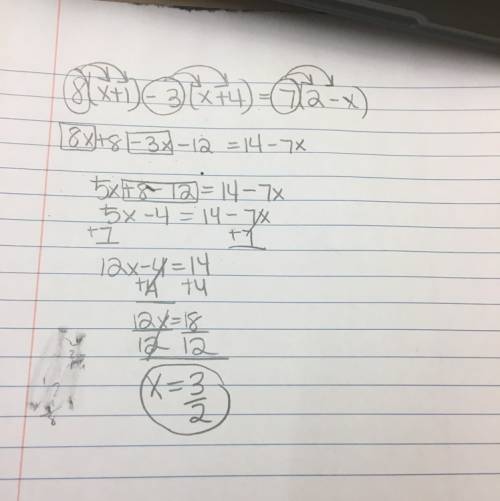 8(x+1)-3(x+4)=7(2-x)
8x+8-3x-12=14-7x
5x+8-12=14-7x
5x-4=14-7x
+7 +7
12x-4=14
+4 +4
12x=18
12 12
x=3/2